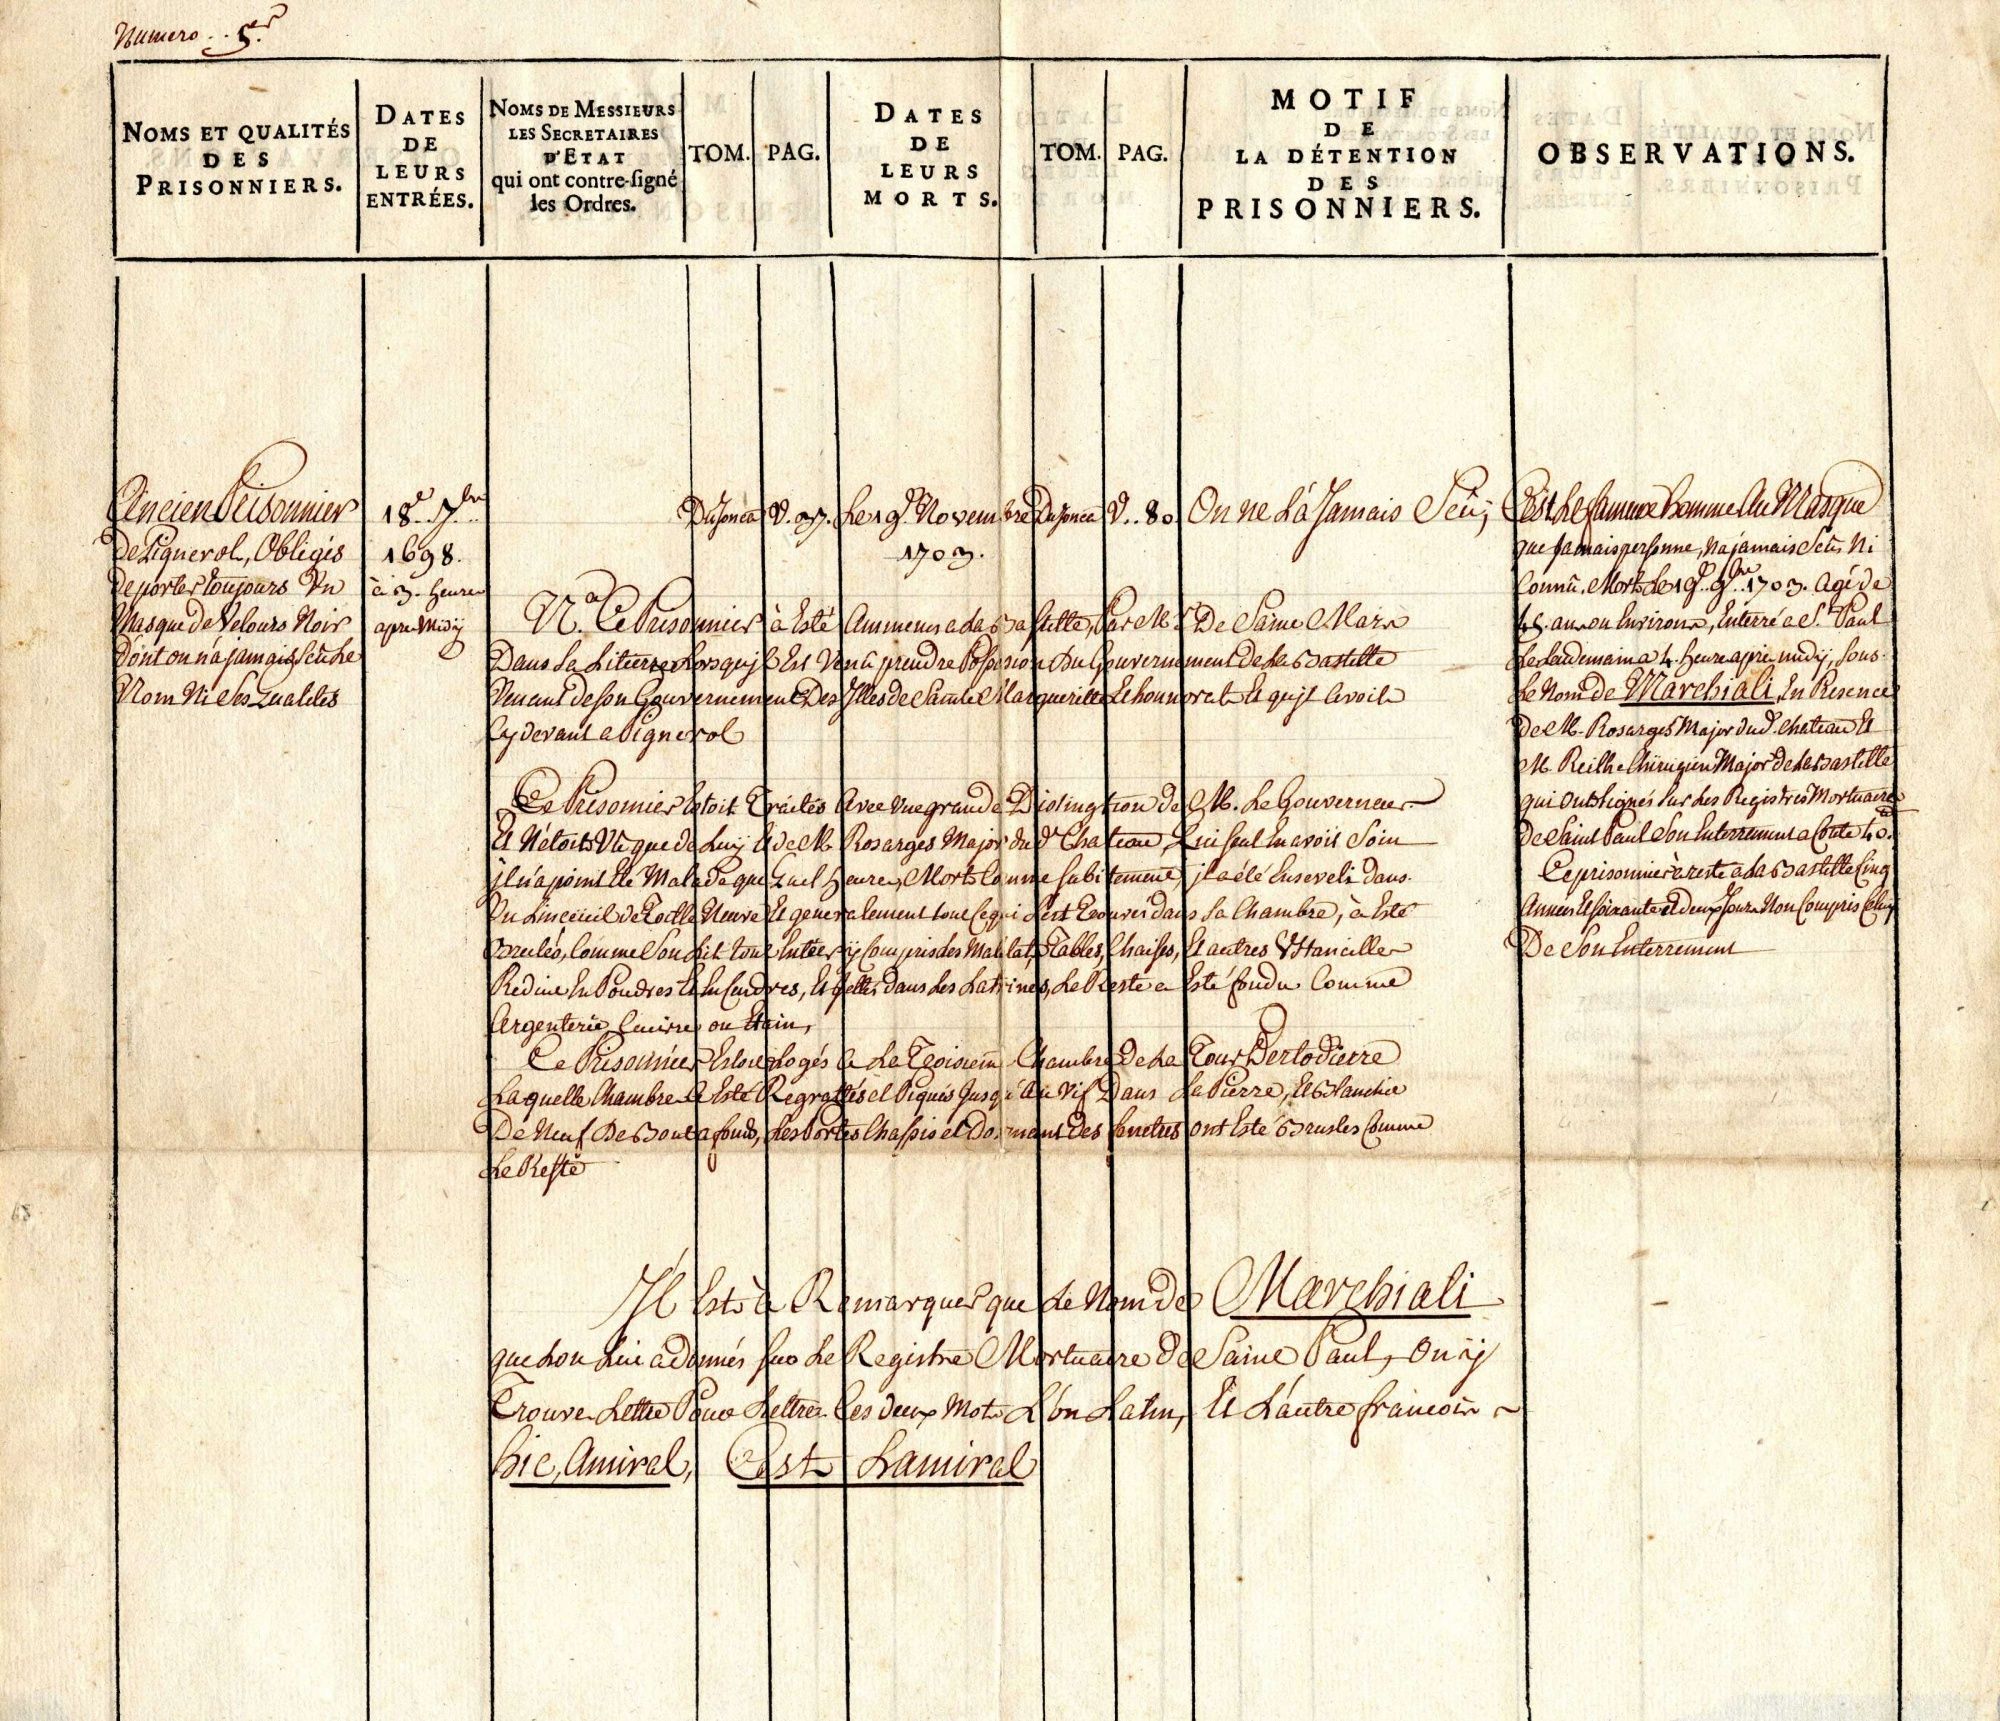 Numero .. 5er
NOMS ET QUALITÉS
DES
PRISONNIERS.
DATES
DE
LEURS
ENTRÉES.
NOMS DE MESSIEURS
LES SECRETAIRES
D'ETAT
qui ont contre-signé
les Ordres.
TOM.
PAG.
DATES
DE
LEURS
MORTS.
TOM.
PAG.
MOTIF
DE
LA DÉTENTION
DES
PRISONNIERS.
OBSERVATIONS.
Ancien Prisonnier
De Pignerol, Obligés
de porter toujours Un
Masque de Velours Noir
dont on n'a jamais sçeu Le
Nom Ni Ses Qualités
18e. 7bre
1698.
à 3. heures
apres Midy
DuJonca
V. 37.
Le 19e. Novembre
1703.
DuJonca
V. 80
On ne L'a Jamais Sçû;
C'est Le fameux homme Au Masque
que Jamais personne, na jamais Sçu Ni
Connû. Mort Le 19e. 9bre 1703. Agé de
45. ans ou Environs, Enterré a St. Paul
Le Lendemain a 4. heures apres midy, sous
Le Nom de Marchiali, En Presence
de M. Rosarges Major dud. chateau Et
M. Reilhe Chirurgien Major de La Bastille
qui Ont Signés sur Les Registres Mortuaires
de Saint Paul Son Enterrement a Couté 40.
Ce prisonnier à resté a La Bastille Cinq
Années Et soixante et deux Jours Non Compris Celuy
De Son Enterrement
Na. Ce Prisonnier à Esté Ammenés a La Bastille, Par M. De Saint Mars
Dans Sa Litierre Lorsqu'jl Est Venû prendre Possesion Du Gouvernement de La Bastille
Venant de son Gouvernement Des Jlles de Sainte Marguerite Et honnorat Et qu'jl Avoit
Cy devant a Pignerol
Ce Prisonnier Estoit Traités Avec Une grande Distingtion de M. Le Gouverneur
Et N'étoit Vû que de Luy Et de M. Rosarges Major dud. Chateau, Qui seul En avoit Soin
jl n'a point Eté Malade que Quel heures, Mort Comme Subitement, jl a été Enseveli dans
Un Linceüil de Toille Neuve Et generalement tout Ce qui S'est Trouvés dans Sa Chambre, à Esté
Brulés, Comme Son Lit tout Entier, y Compris des Matelats, Tables, Chaises, Et autres Ustancilles
Reduit En Poudres Et En Cendres, Et jettés dans Les Latrines, Le Reste a Esté fondu Comme
Argenterie, Cuivre ou Etain,
Ce Prisonnier Estoit Logés A La Troisiem Chambre De La Tour Bertodierre
Laquelle Chambre a Esté Regrattés et Piqués Jusqu'au Vif Dans La Pierre, Et Blanchie
De Neuf De Bout a fonds, Les Portes Chassis et Dormant des fenetres ont Esté Brusles Comme
Le Reste
Jl Est à Remarquer que Le Nom De Marchiali
que Lon Lui a donnés sur Le Registre Mortuaire de Saint Paul, On y
Trouve Lettre Pour Lettres Ces deux Mots L'un Latin, Et L'autre françois
hic, Amiral, C'est Lamiral